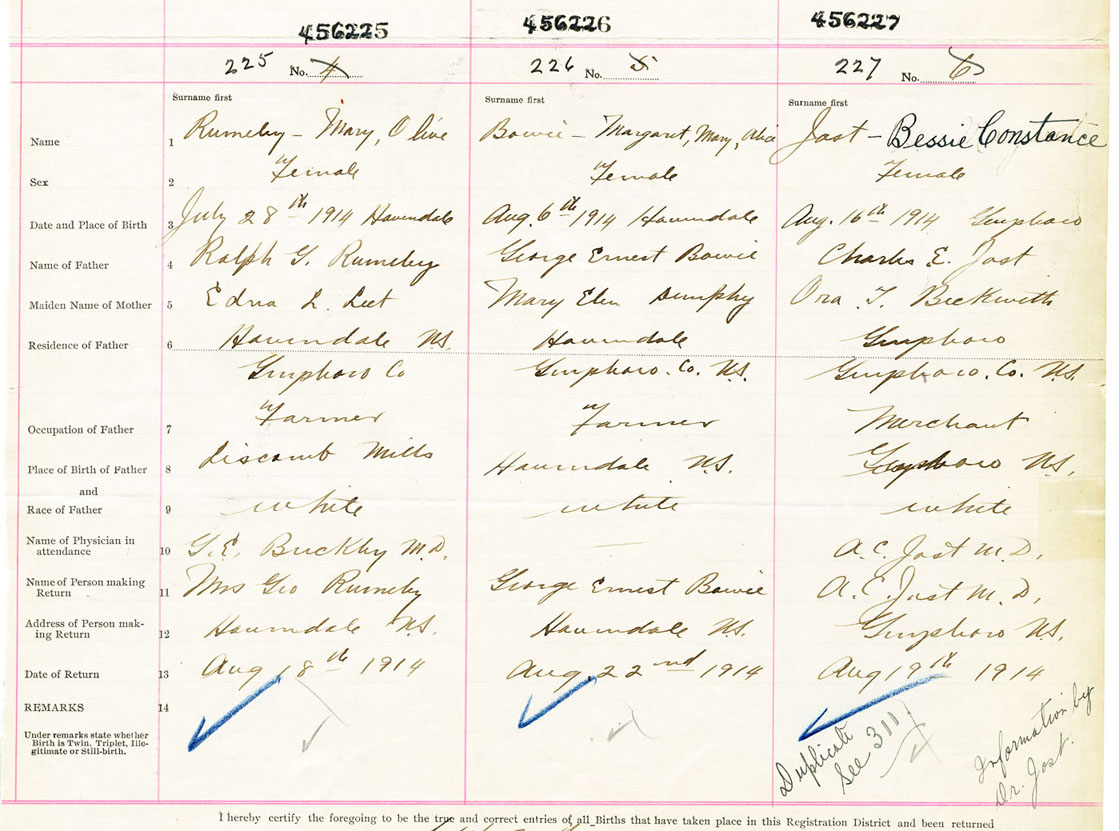 456225 456226 456227
225 No. 4 226 No. 5 227 No. 6
Surname first Surname first Surname first
Name 1 Rumeby - Mary, Olive Bowie - Margaret, Mary, Alice Jost - Bessie Constance
Sex 2 Female Female Female
Date and Place of Birth 3 July 28th 1914 Havendale Aug. 6th 1914 Havendale Aug. 16th 1914 Guysboro
Name of Father 4 Ralph G. Rumeby George Ernest Bowie Charles E. Jost
Maiden Name of Mother 5 Edna L. Mary Ellen Dunphy Ora T. Beckwith
Residence of Father 6 Havendale NS. Havendale Guysboro
Guysboro Co Guysboro. Co. N.S. Guysboro. Co. N.S.
Occupation of Father 7 Farmer Farmer Merchant
Place of Birth of Father 8 Liscomb Mills Havendale N.S. Guysboro N.S.
and
Race of Father 9 white white white
Name of Physician in
attendance 10 G.E. Buckley M.D. — A.C. Jost M.D.
Name of Person making
Return 11 Mrs Geo Rumeby George Ernest Bowie A.C. Jost M.D.
Address of Person mak-
ing Return 12 Havendale N.S. Havendale N.S. Guysboro N.S.
Date of Return 13 Aug 18th 1914 Aug. 22nd 1914 Aug 19th 1914
REMARKS 14
Under remarks state whether
Birth is Twin, Triplet, Ille-
gitimate or Still-birth.
Duplicate
See 311
Information by
Dr. Jost.
I hereby certify the foregoing to be the true and correct entries of all Births that have taken place in this Registration District and been returned